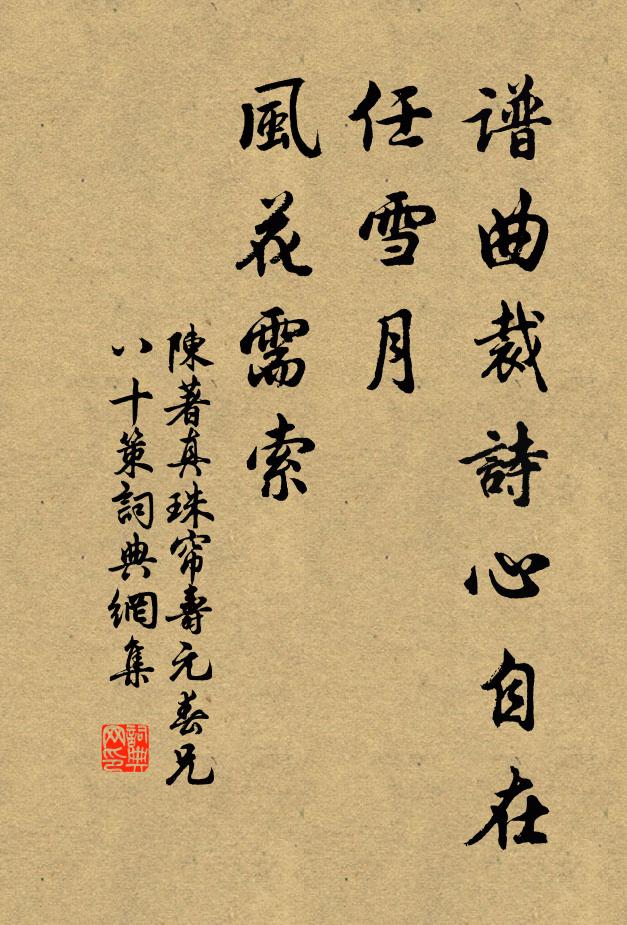 譜曲裁詩心自在
任雪月
風花需索
陳著真珠帘壽元春兄
八十策詞典網集
詞典
网印